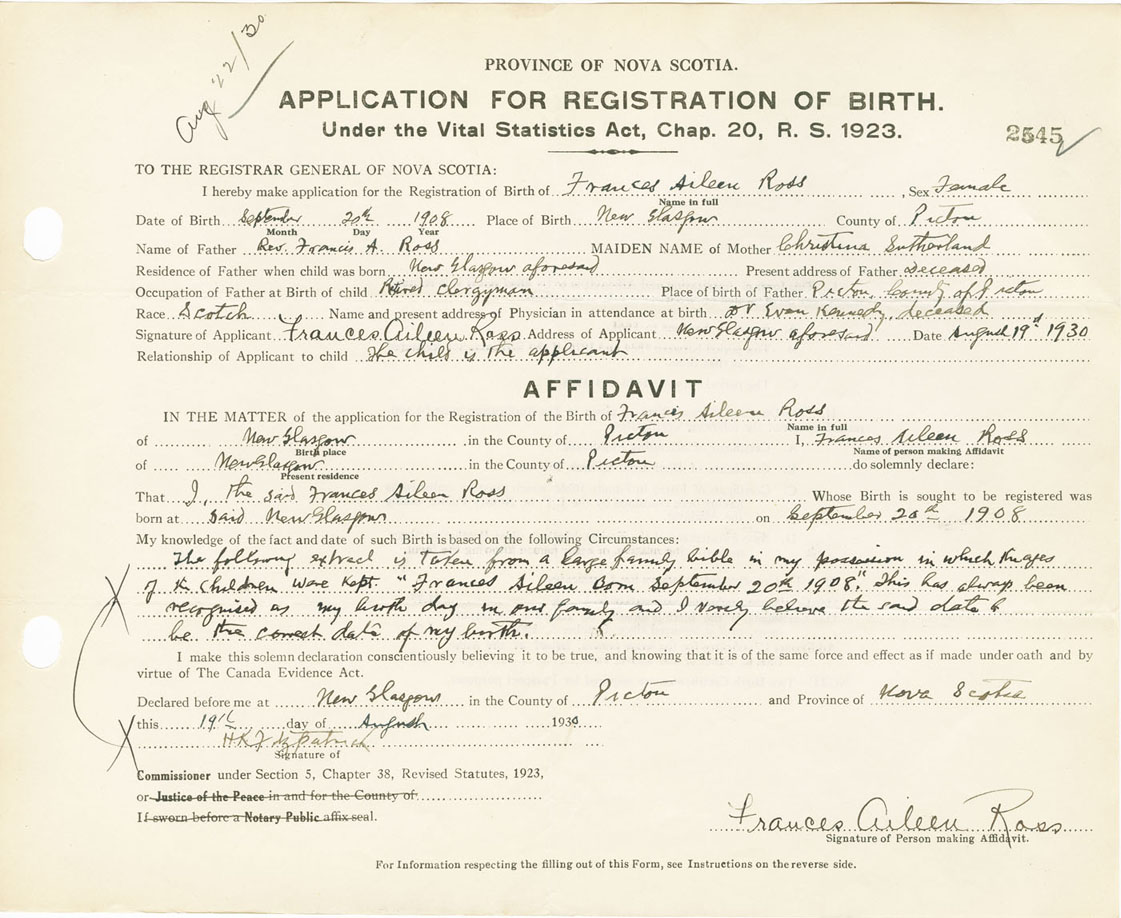 Aug 22/30
PROVINCE OF NOVA SCOTIA.
APPLICATION FOR REGISTRATION OF BIRTH.
Under the Vital Statistics Act, Chap. 20, R. S. 1923.
2545
TO THE REGISTRAR GENERAL OF NOVA SCOTIA:
I hereby make application for the Registration of Birth of Frances Aileen Ross, Sex Female
Name in full
Date of Birth September 20th 1908 Place of Birth New Glasgow County of Pictou
Month Day Year
Name of Father Rev. Francis A. Ross MAIDEN NAME of Mother Christina Sutherland
Residence of Father when child was born New Glasgow aforesaid Present address of Father Deceased
Occupation of Father at Birth of child Retired Clergyman Place of birth of Father Pictou, County of Pictou
Race Scotch Name and present address of Physician in attendance at birth Dr Evan Kennedy, deceased
Signature of Applicant Frances Aileen Ross Address of Applicant New Glasgow aforesaid Date August 19th 1930
Relationship of Applicant to child The child is the applicant
AFFIDAVIT
IN THE MATTER of the application for the Registration of the Birth of Francis Aileen Ross
Name in full
of New Glasgow in the County of Pictou I, Frances Aileen Ross
Birth place Name of person making Affidavit
of New Glasgow in the County of Pictou do solemnly declare:
Present residence
That I, the said Frances Aileen Ross Whose Birth is sought to be registered was
born at said New Glasgow on September 20th 1908
My knowledge of the fact and date of such Birth is based on the following Circumstances:
The following extract is taken from a large family bible in my possession in which the ages
of the children were kept "Frances Aileen born September 20th 1908". This has always been
recognised as my birth day in our family and I verily believe the said date to
be the correct date of my birth.
I make this solemn declaration conscientiously believing it to be true, and knowing that it is of the same force and effect as if made under oath and by
virtue of The Canada Evidence Act.
Declared before me at New Glasgow in the County of Pictou and Province of Nova Scotia
this 19th day of August 1930
H K Fitzpatrick
Signature of
Commissioner under Section 5, Chapter 38, Revised Statutes, 1923,
or Justice of the Peace in and for the County of
If sworn before a Notary Public affix seal.
Frances Aileen Ross
Signature of Person making Affidavit.
For Information respecting the filling out of this Form, see Instructions on the reverse side.